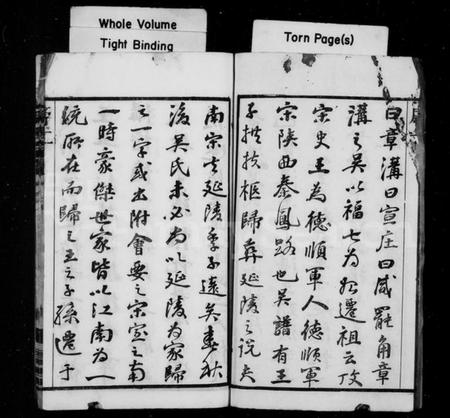 Whole Volume
Tight Binding
Torn Page(s)
曰章溝曰宣庄曰咸罷角章
溝之吳以福七為始遷祖云攷
宋史王為德順軍人德順軍
宋陝西秦鳳路也吳譜有王
子拱扶柩歸葬延陵之說夫
南宋去延陵季子遠矣春秋
後吳氏未必尚以延陵為家歸
之一字或出附會要之宋室之南
一時豪傑世家皆以江南為一
統所在而歸之王之子孫遷于